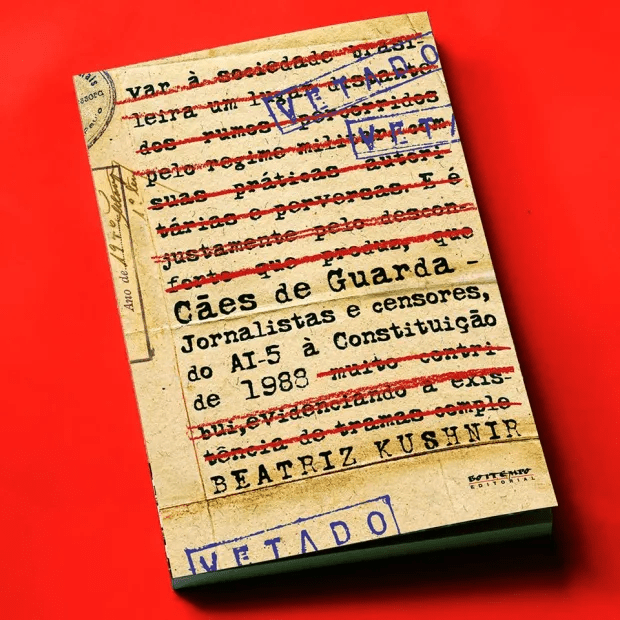 var à sociedade brasi-
leira um lugar distante
dos rumos percorridos
pelo regime militar com
suas práticas autori-
tárias e perversas. E é
justamente pelo descon-
forto que produz, que
Cães de Guarda –
Jornalistas e censores,
do AI-5 à Constituição
de 1988 muito contri-
bui, evidenciando a exis-
tência de tramas comple
BEATRIZ KUSHNIR
BOITEMPO
EDITORIAL
VETADO
VETA
VETADO
Ano de 19